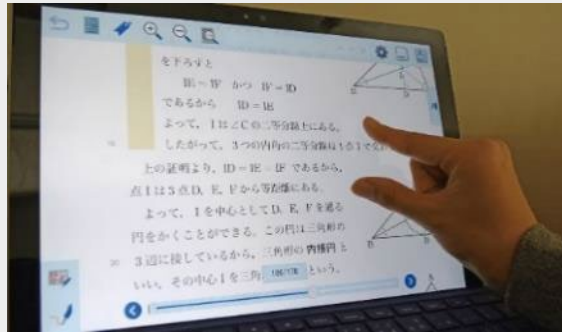 を下ろすと
IE＝IF かつ IF＝ID
であるから ID＝IE
よって，Iは∠Cの二等分線上にある。
したがって，3つの内角の二等分線は1点Iで交
上の証明より，ID＝IE＝IF であるから，
点Iは3点D，E，Fから等距離にある。
よって，Iを中心としてD，E，Fを通る
円をかくことができる。この円は三角形の
20 3辺に接しているから，三角形の内接円と
いい，その中心Iを三角
という。
B
D